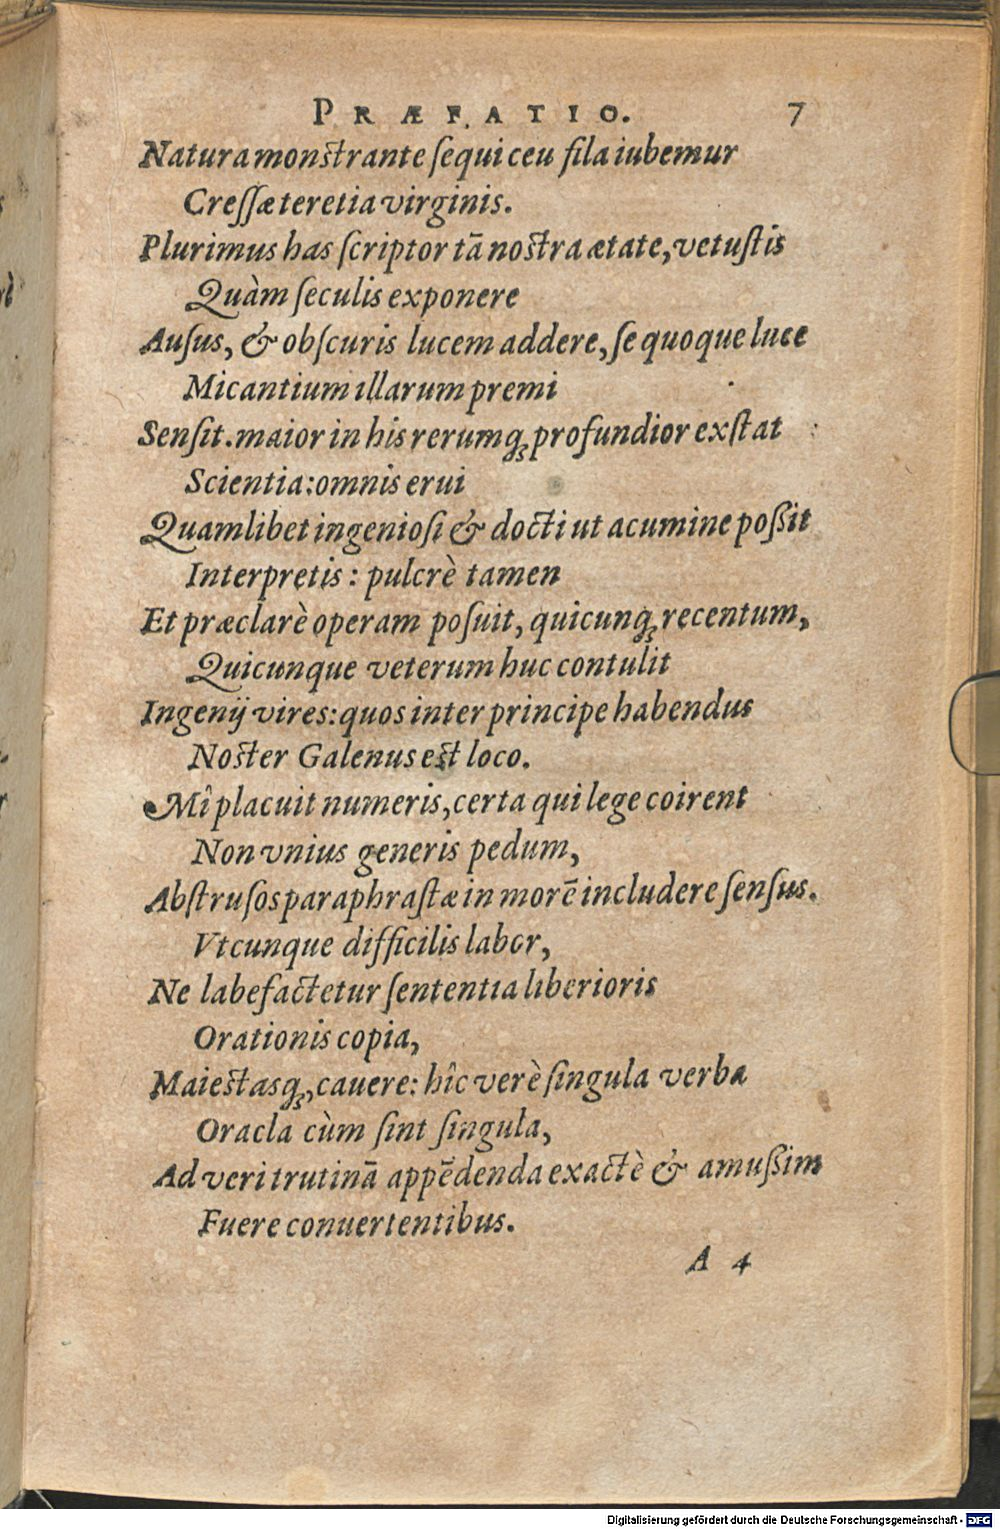 PRÆFATIO. 7
Natura monſtrante ſequi ceu fila iubemur
Creſſæ teretia virginis.
Plurimus has ſcriptor tā noſtra ætate, vetuſtis
Quàm ſeculis exponere
Auſus, & obſcuris lucem addere, ſe quoque luce
Micantium illarum premi
Senſit. maior in his rerumq; profundior exſtat
Scientia: omnis erui
Quamlibet ingenioſi & docti ut acumine poßit
Interpretis: pulcrè tamen
Et præclarè operam poſuit, quicunq; recentum,
Quicunque veterum huc contulit
Ingenij vires: quos inter principe habendus
Noſter Galenus eſt loco.
Mî placuit numeris, certa qui lege coirent
Non vnius generis pedum,
Abſtruſos paraphraſtæ in morē includere ſenſus.
Vtcunque difficilis labor,
Ne labefactetur ſententia liberioris
Orationis copia,
Maieſtasq;, cauere: hîc verè ſingula verba
Oracla cùm ſint ſingula,
Ad veri trutinā appēdenda exactè & amußim
Fuere conuertentibus.
A 4
Digitalisierung gefördert durch die Deutsche Forschungsgemeinschaft - DFG